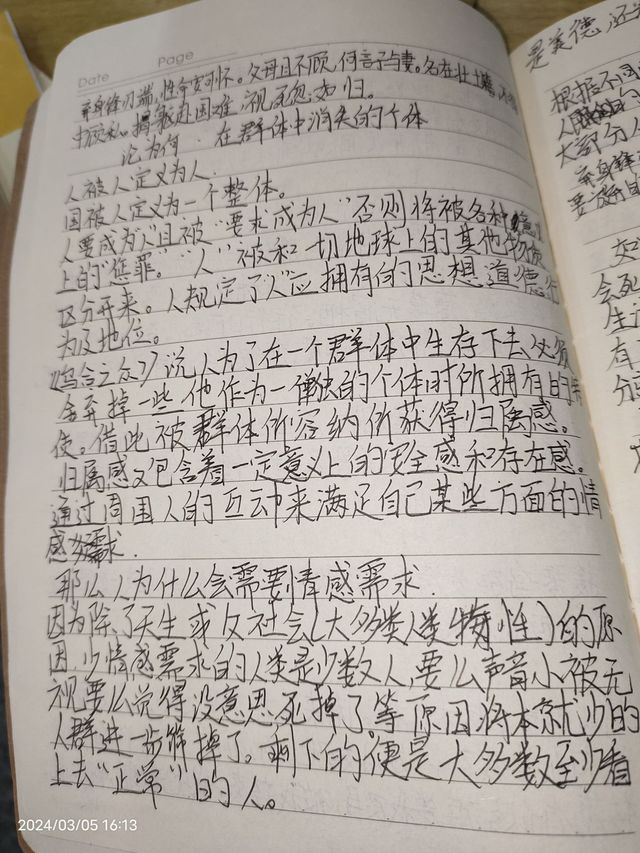 Date
Page
弃身锋刃端,性命安可怀。父母且不顾,何言子与妻。名在壮士籍,
中顾私。捐躯赴国难,视死忽如归。
论为何 在群体中消失的个体
人被人定义为人。
国被人定义为一个整体。
人要成为"人"且被"要求成为人"否则将被各种意义
上的"惩罪"。"人"被和一切地球上的其他物质
区分开来。人规定了"人"应拥有的思想道德行
为及地位。
《乌合之众》说人为了在一个群体中生存下去必须
舍弃掉一些他作为一单独的个体时所拥有的
使。借此被群体所容纳所获得归属感。
归属感又包含着一定意义上的安全感和存在感。
通过周围人的互动来满足自己某些方面的情
感需求.
那么人为什么会需要情感需求.
因为除了天生或反社会(大多类人类特性)的原
因,少情感需求的人类是少数人,要么声音小被无
视要么觉得没意思死掉了等原因将本就少的
人群进一步筛掉了。剩下的便是大多数至少看
上去"正常"的人。
是美德,还
根据不同
大部分人
弃身锋
会死
生
有
分
2024/03/05 16:13